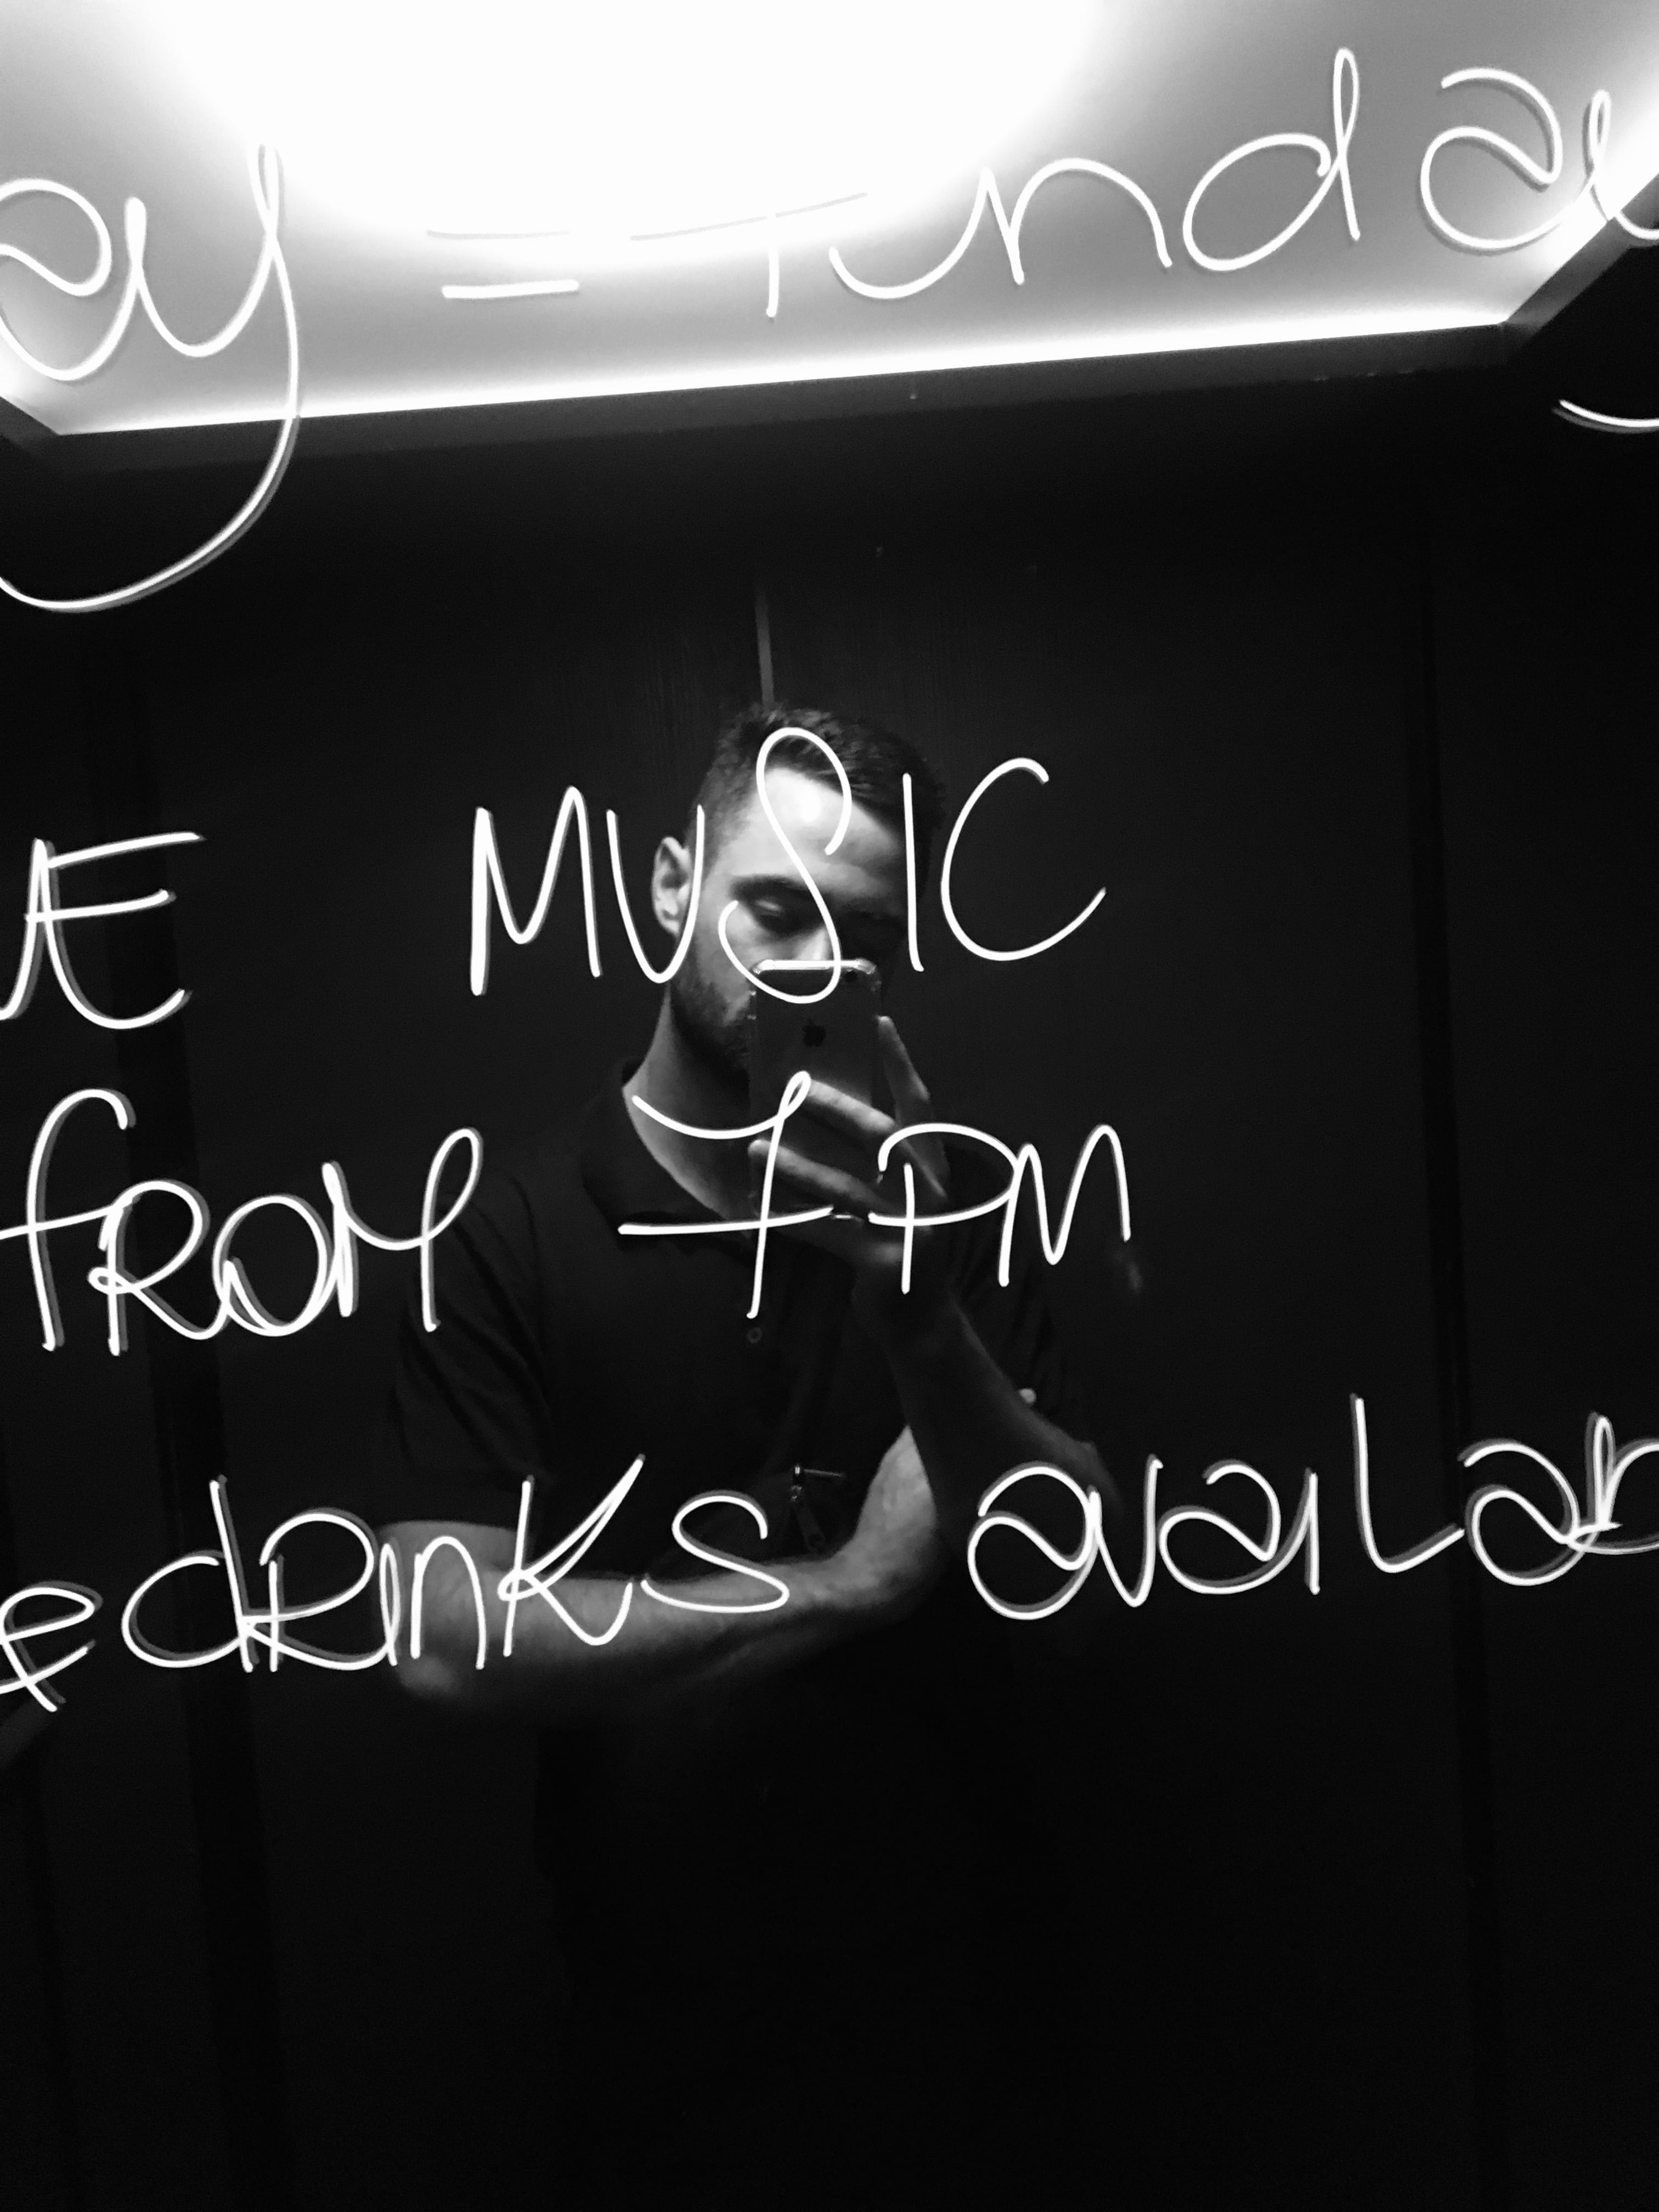 ay = Funday
E MUSIC
FROM 7 PM
e drinks availab